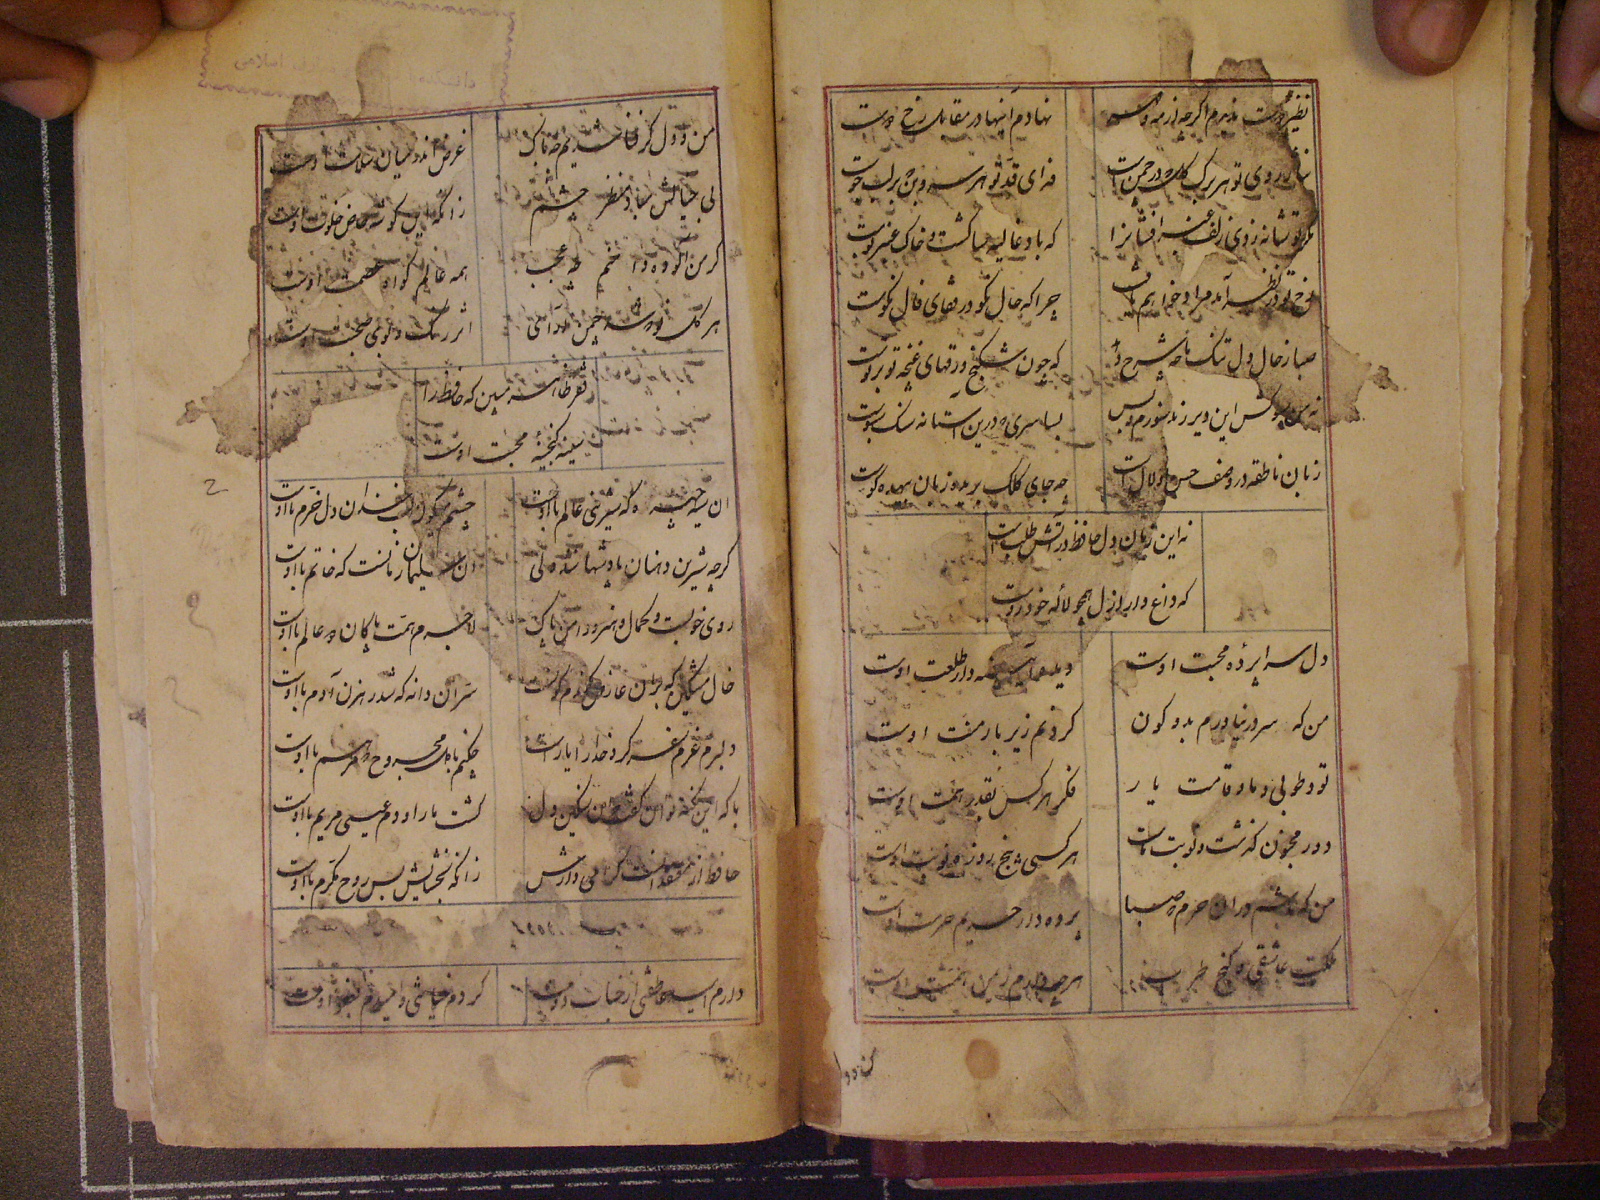 نظیر دوست ندیدم اگرچه از مه و مهر
نهادم آینها در مقابل رخ دوست
نثار روی تو هر برگ گل که در چمن است
فدای قد تو هر سرو بن که بر لب جوست
مگر تو شانه زدی زلف عنبر افشانرا
که باد غالیه سا گشت و خاک عنبر بوست
رخ تو در نظر آمد مراد خواهم یافت
چرا که حال نکو در قفای فال نکوست
صبا ز حال دل تنگ ما چه شرح دهد
که چون شکنج ورقهای غنچه تو بر توست
نه من سبوکش این دیر رند سوزم و بس
بسا سری که درین آستانه سنگ و سبوست
زبان ناطقه در وصف حسن او لال است
چه جای کلک بریده زبان بیهده گوست
نه این زمان دل حافظ در آتش طلب است
که داغ دار ازل همچو لاله خودروست
دل سراپرده محبت اوست
دیده آینه دار طلعت اوست
من که سر در نیاورم بدو کون
گردنم زیر بار منت اوست
تو و طوبی و ما و قامت یار
فکر هر کس بقدر همت اوست
دور مجنون گذشت و نوبت ماست
هر کسی پنج روزه نوبت اوست
من که باشم در آن حرم که صبا
پرده دار حریم حرمت اوست
ملکت عاشقی و گنج طرب
هرچه دارم ز یمن همت اوست
من و دل گر فنا شدیم چه باک
غرض اندر میان سلامت اوست
بی خیالش مباد منظر چشم
زانکه این گوشه خاص خلوت اوست
گر من آلوده دامنم چه عجب
همه عالم گواه عصمت اوست
هر گل نو که شد چمن آرای
اثر رنگ و بوی صحبت اوست
فقر ظاهر مبین که حافظ را
سینه گنجینه محبت اوست
آن سیه چرده که شیرینی عالم با اوست
چشم میگون لب خندان دل خرم با اوست
گرچه شیرین دهنان پادشهانند ولی
آن سلیمان زمانست که خاتم با اوست
روی خوبست و کمال و هنر و دامن پاک
لاجرم همت پاکان دو عالم با اوست
خال مشکین که بر آن عارض گندم گونست
سر آن دانه که شد رهزن آدم با اوست
دلبرم عزم سفر کرد خدا را یاران
چکنم با دل مجروح که مرهم با اوست
با که این نکته توان گفت که آن سنگین دل
کشت ما را و دم عیسی مریم با اوست
حافظ از معتقدانست گرامی دارش
زانکه بخشایش بس روح مکرم با اوست
دارم امید عاطفتی از جناب دوست
کردم خیانتی و امیدم بعفو اوست